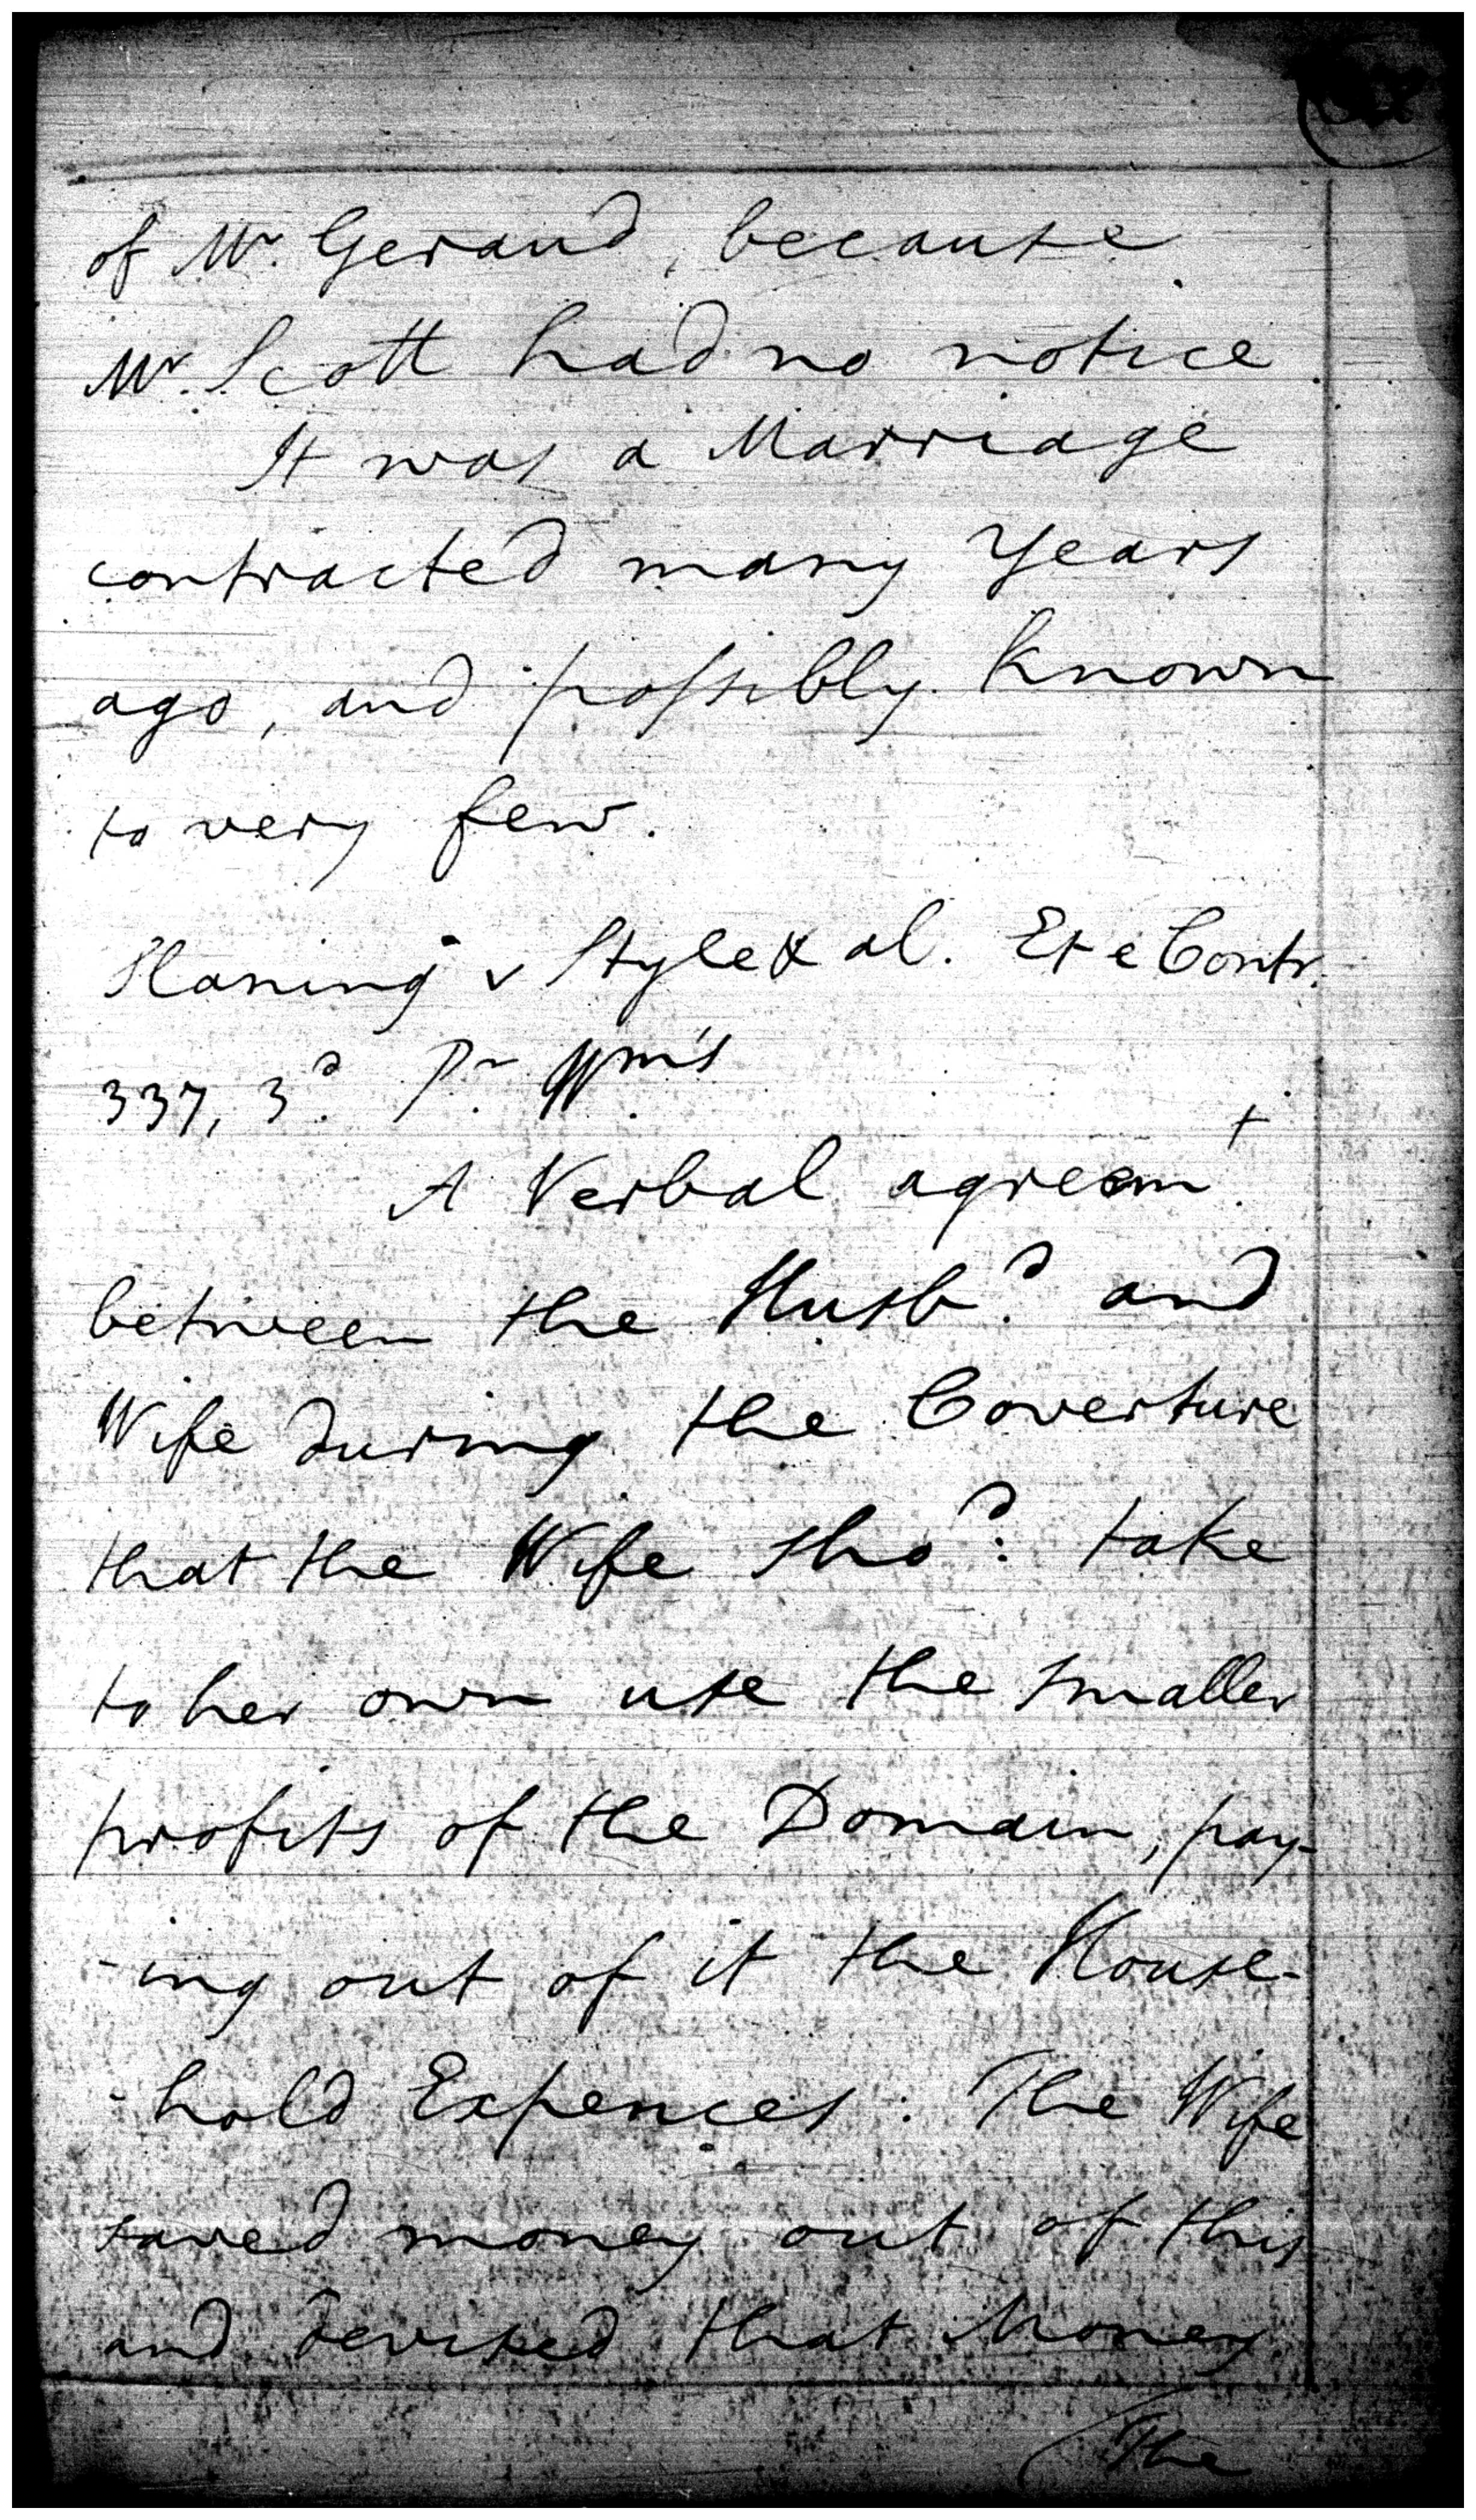 of Mr. Gerand, because
Mr. Scott had no notice.
It was a Marriage
contracted many Years
ago, and possibly known
to very few.
Slaning v Style & al. Et e Contr.
337, 3d. Pr. Wm's
A Verbal agreemt.
between the Husbd. and
Wife during the Coverture
that the Wife shod: take
to her own use the smaller
profits of the Domain, pay-
-ing out of it the House-
-hold Expences: The Wife
saved money out of this
and devised that Money.
The